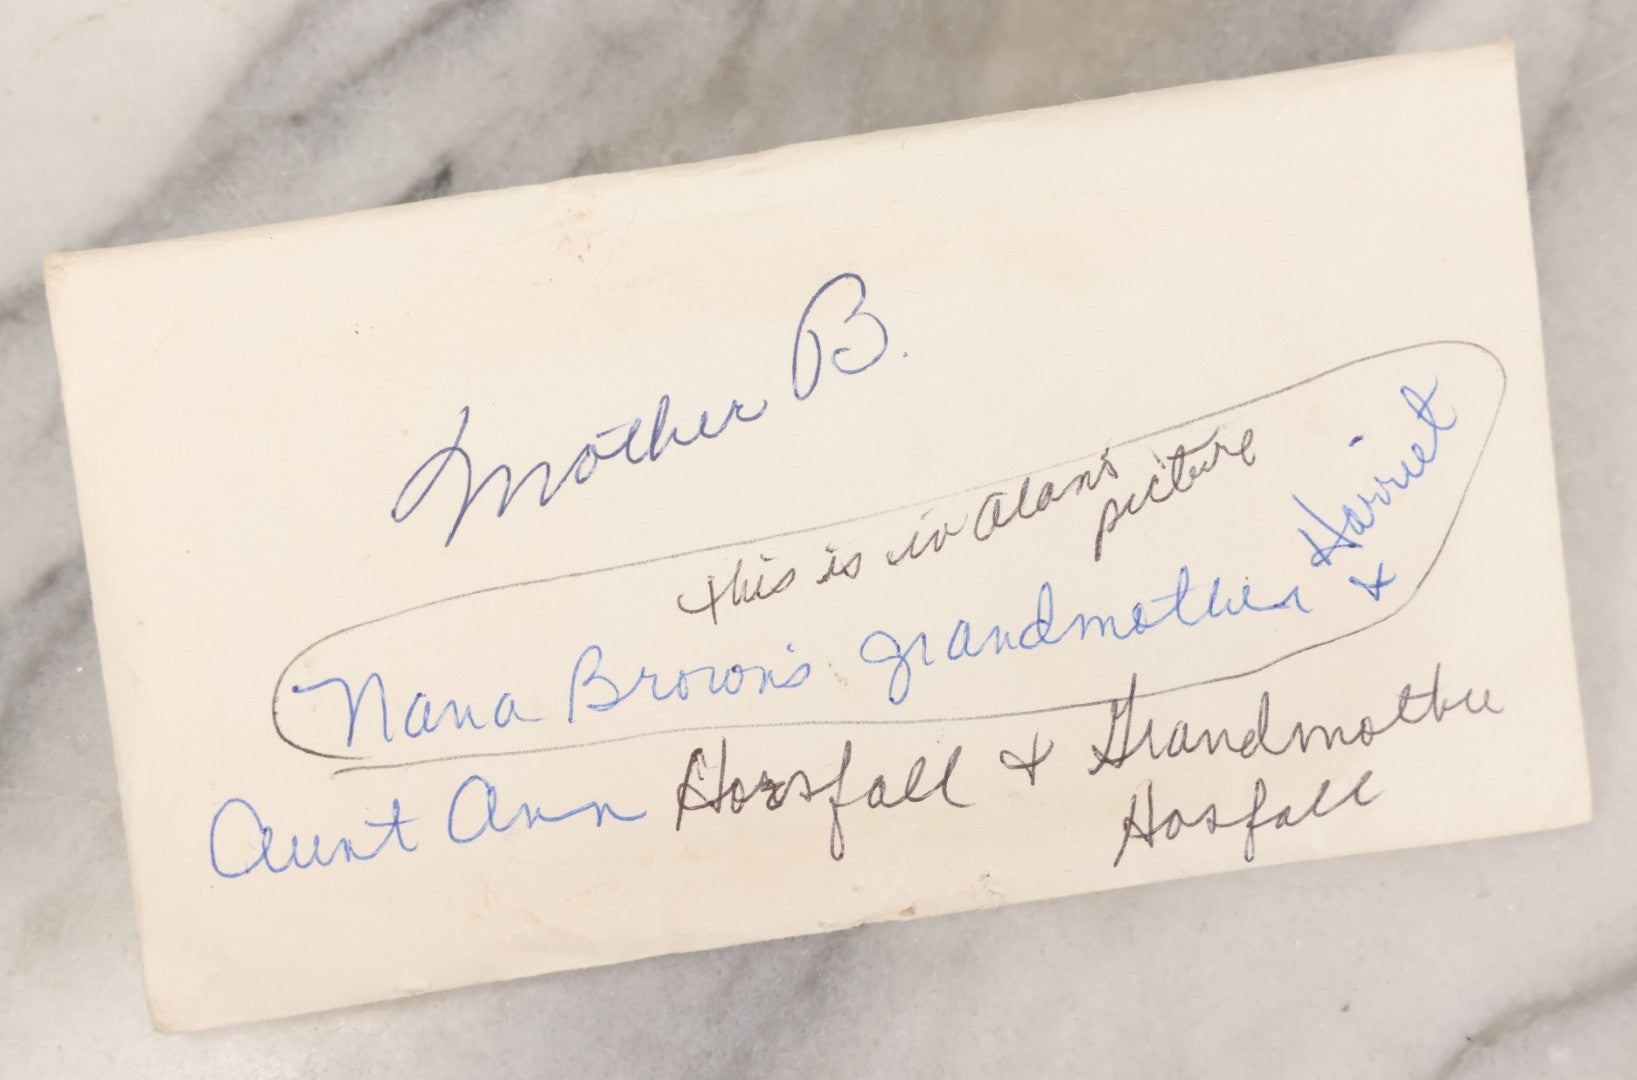 Mother B.
this is in Alan's
picture
Nana Brown's grandmother Harriet
+
Aunt Ann Horsfall + Grandmother
Hosfall